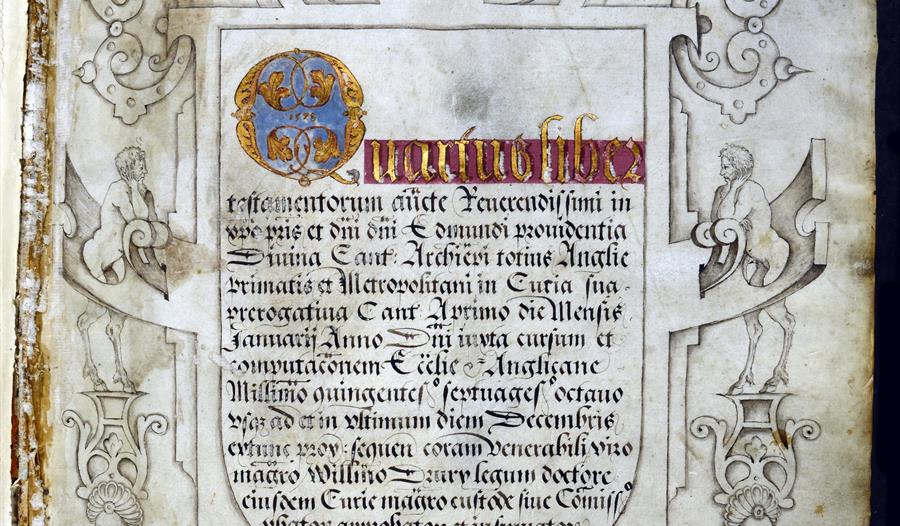 1578
Quartus liber
testamentorum aucte Reuerendissimi in
xpo pris et dni dni Edmundi prouidentia
Diuina Cant: Archiepi totius Anglie
primatis et Metropolitani in Curia sua
prerogatiua Cant A primo die Mensis
Januarij Anno Dni iuxta cursum et
computaconem Ecclie Anglicane
Millimo quingentes° septuages° octauo
vsqz ad et in vltimum diem Decembris
extunc prox: sequen coram venerabili viro
magro Willmo Drury legum doctore
eiusdem Curie magro custode siue Comiss°